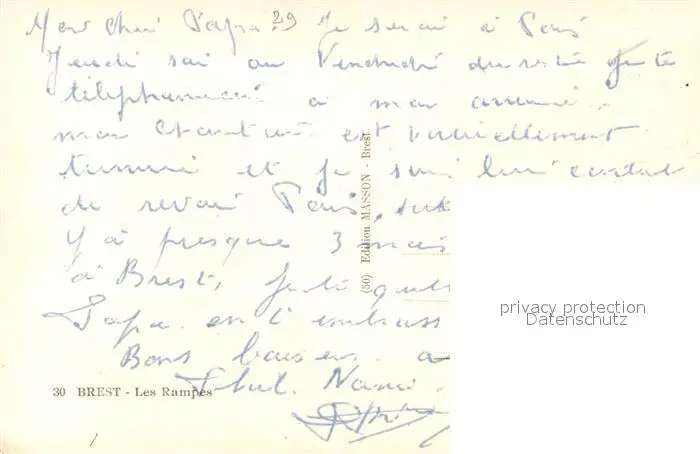 Mon cher Papa. 29 Je serai à Paris
Jeudi soir ou Vendredi du reste je te
téléphonerai à mon arrivée.
mon Chantier est virtuellement
terminé et je suis bien content
de revoir Paris,
Y a presque 3 mois
à Brest, je te quitte
Papa en t'embrass
Bons baisers a
30 BREST - Les Rampes
(50) Edition MASSON - Brest
privacy protection
Datenschutz